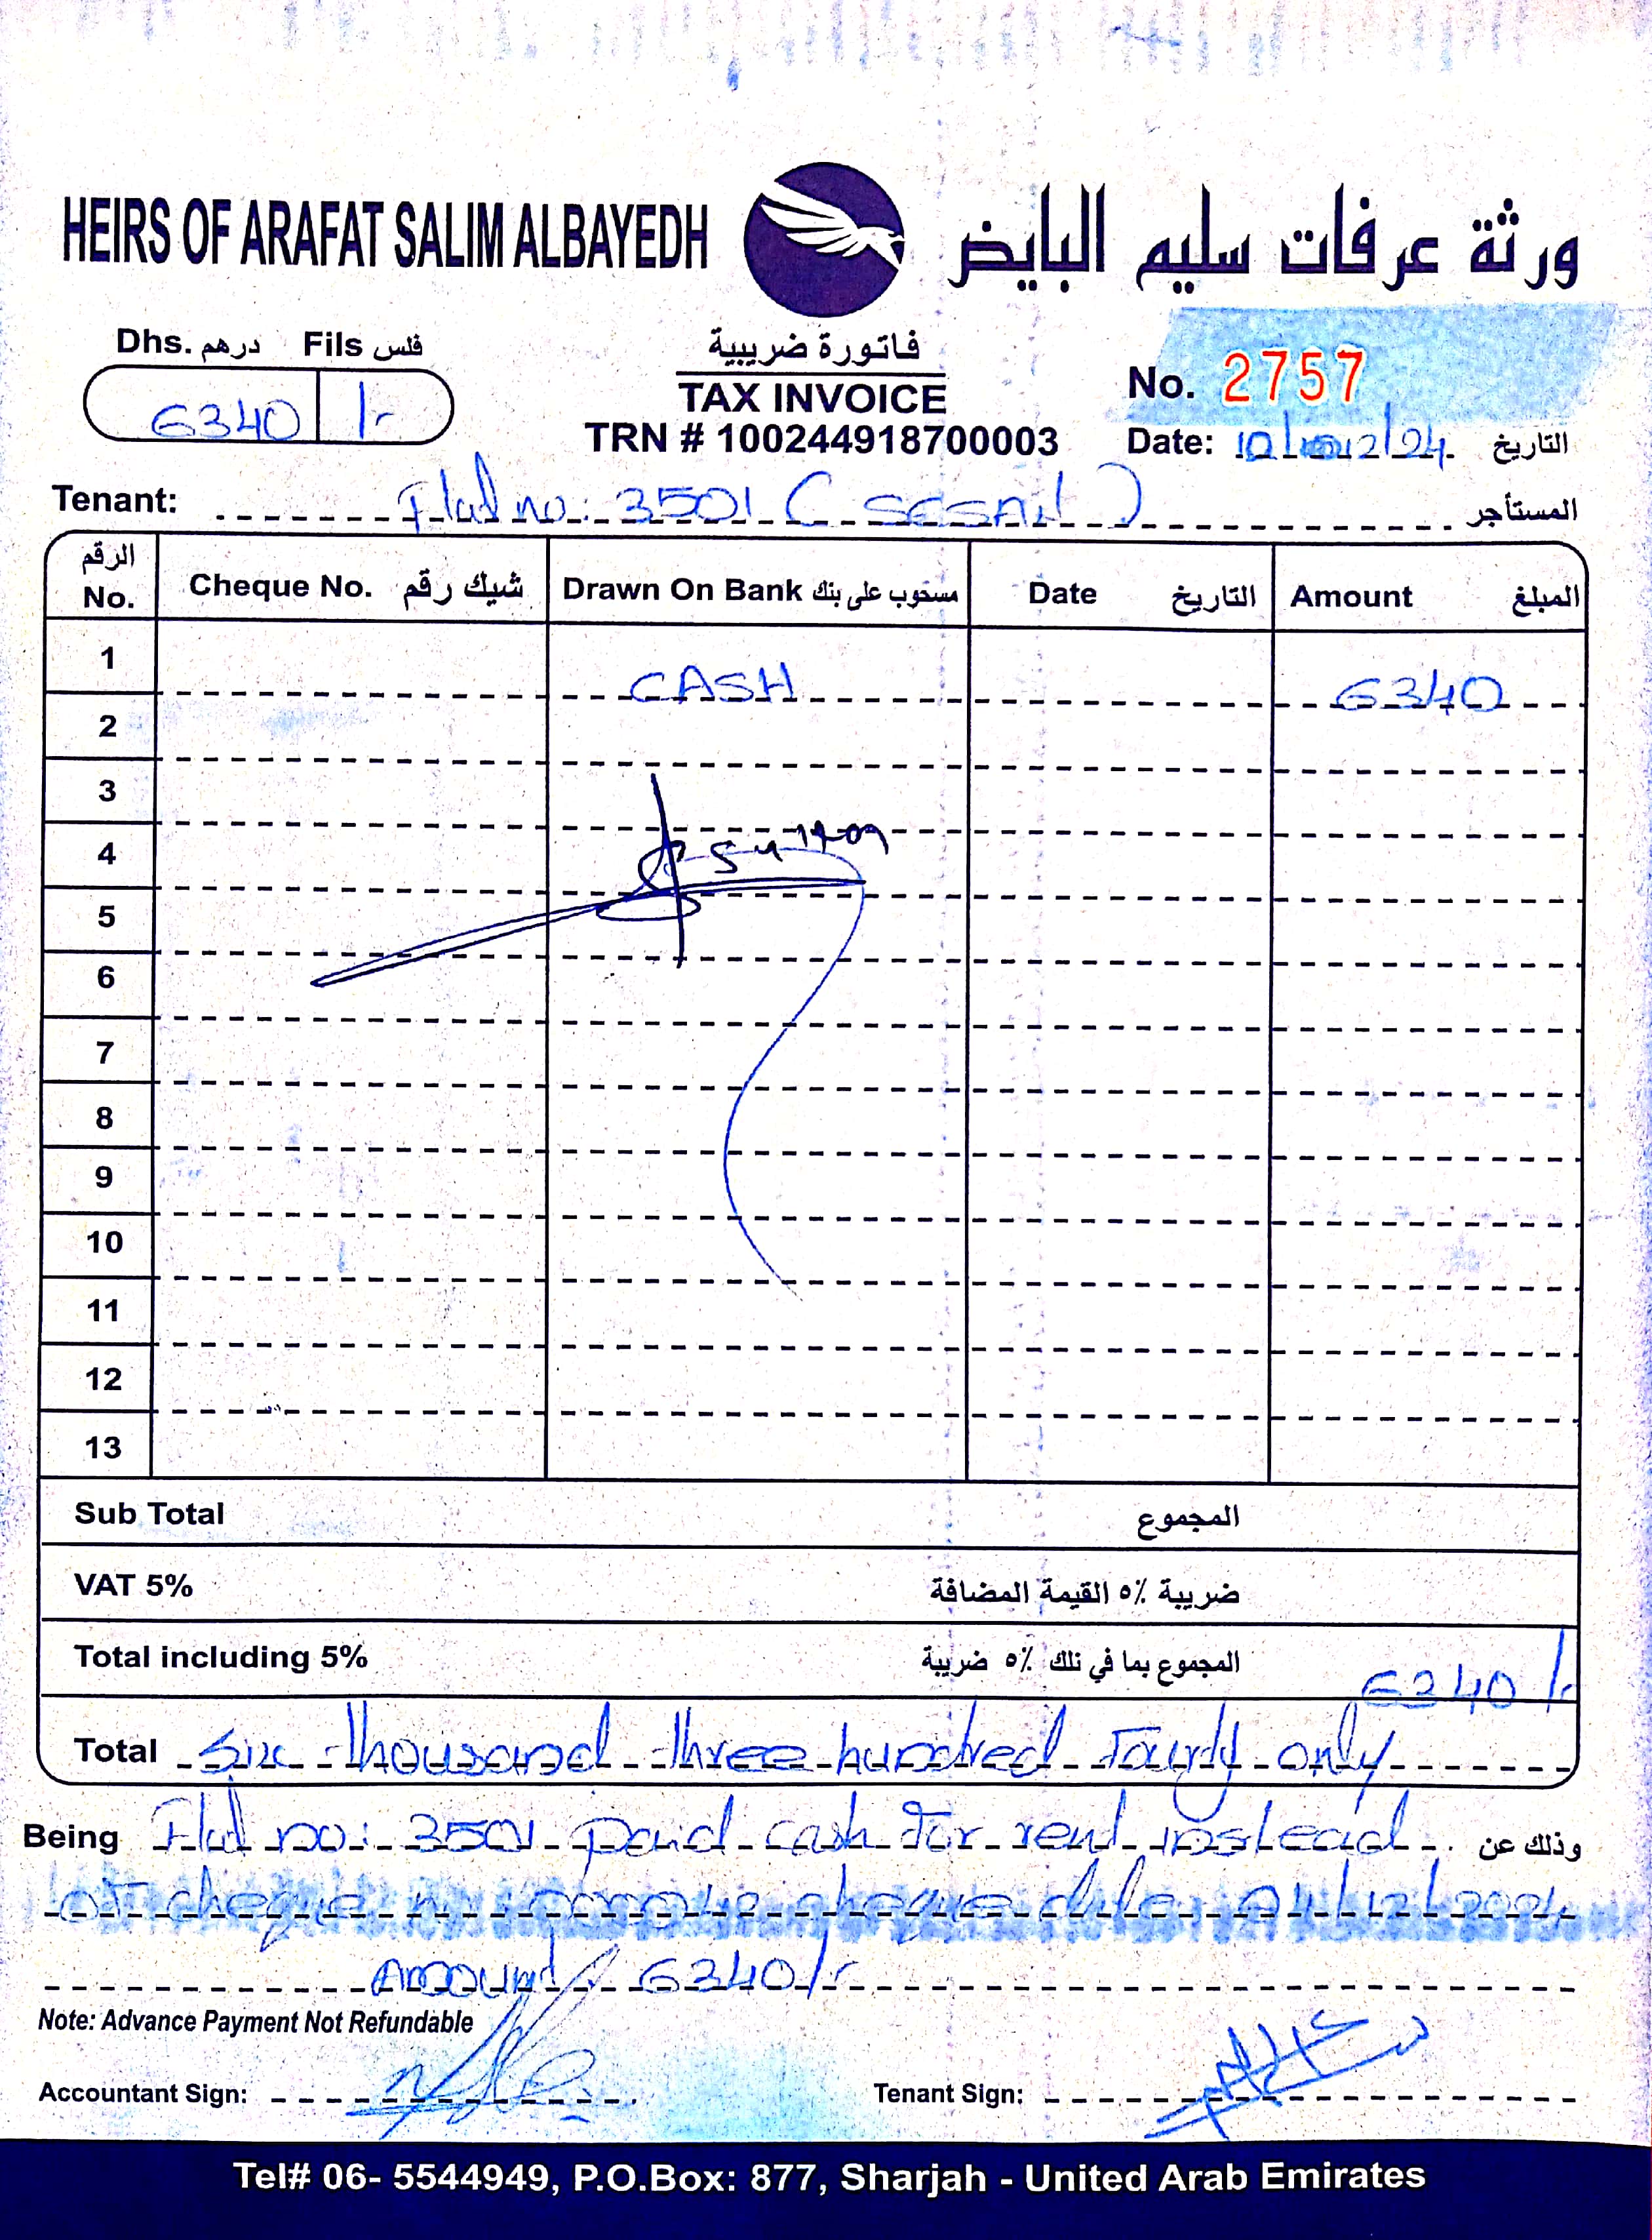 HEIRS OF ARAFAT SALIM ALBAYEDH ورثة عرفات سليم البايض
Dhs. درهم Fils فلس
6340 /-
فاتورة ضريبية
TAX INVOICE
TRN # 100244918700003
No. 2757
Date: 12/24 التاريخ
Tenant: Flat no: 3501 ( ) المستأجر
الرقم No. Cheque No. شيك رقم Drawn On Bank مسحوب على بنك Date التاريخ Amount المبلغ
1 CASH 6340
2
3
4
5
6
7
8
9
10
11
12
13
Sub Total المجموع
VAT 5% ضريبة ٥٪ القيمة المضافة
Total including 5% المجموع بما في ذلك ٥٪ ضريبة 6340/-
Total Six thousand three hundred fourty only
Being Flat no: 3501 paid cash for rent instead وذلك عن
of cheque n: 000042 cheque date: 04/12/2024
Amount: 6340/-
Note: Advance Payment Not Refundable
Accountant Sign: Tenant Sign:
Tel# 06- 5544949, P.O.Box: 877, Sharjah - United Arab Emirates